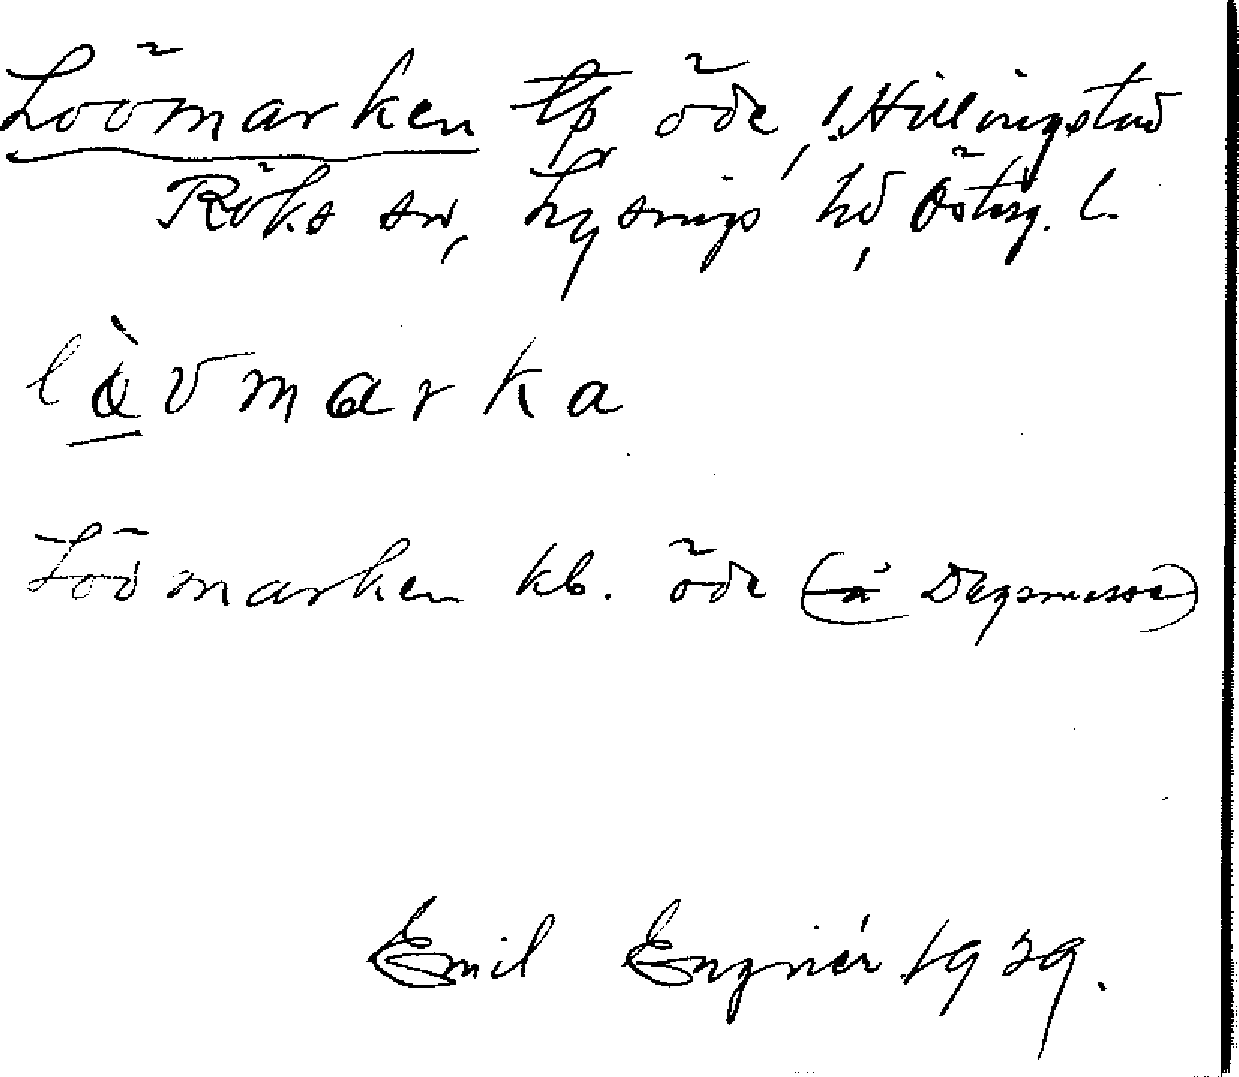 Lövmarken tp öde, l. Hillingstad
Röks sn, Lysings hd, Österg. l.
lövmarka
Lövmarken kb. öde (å Dagsmosse)
Emil Engnér 1929.